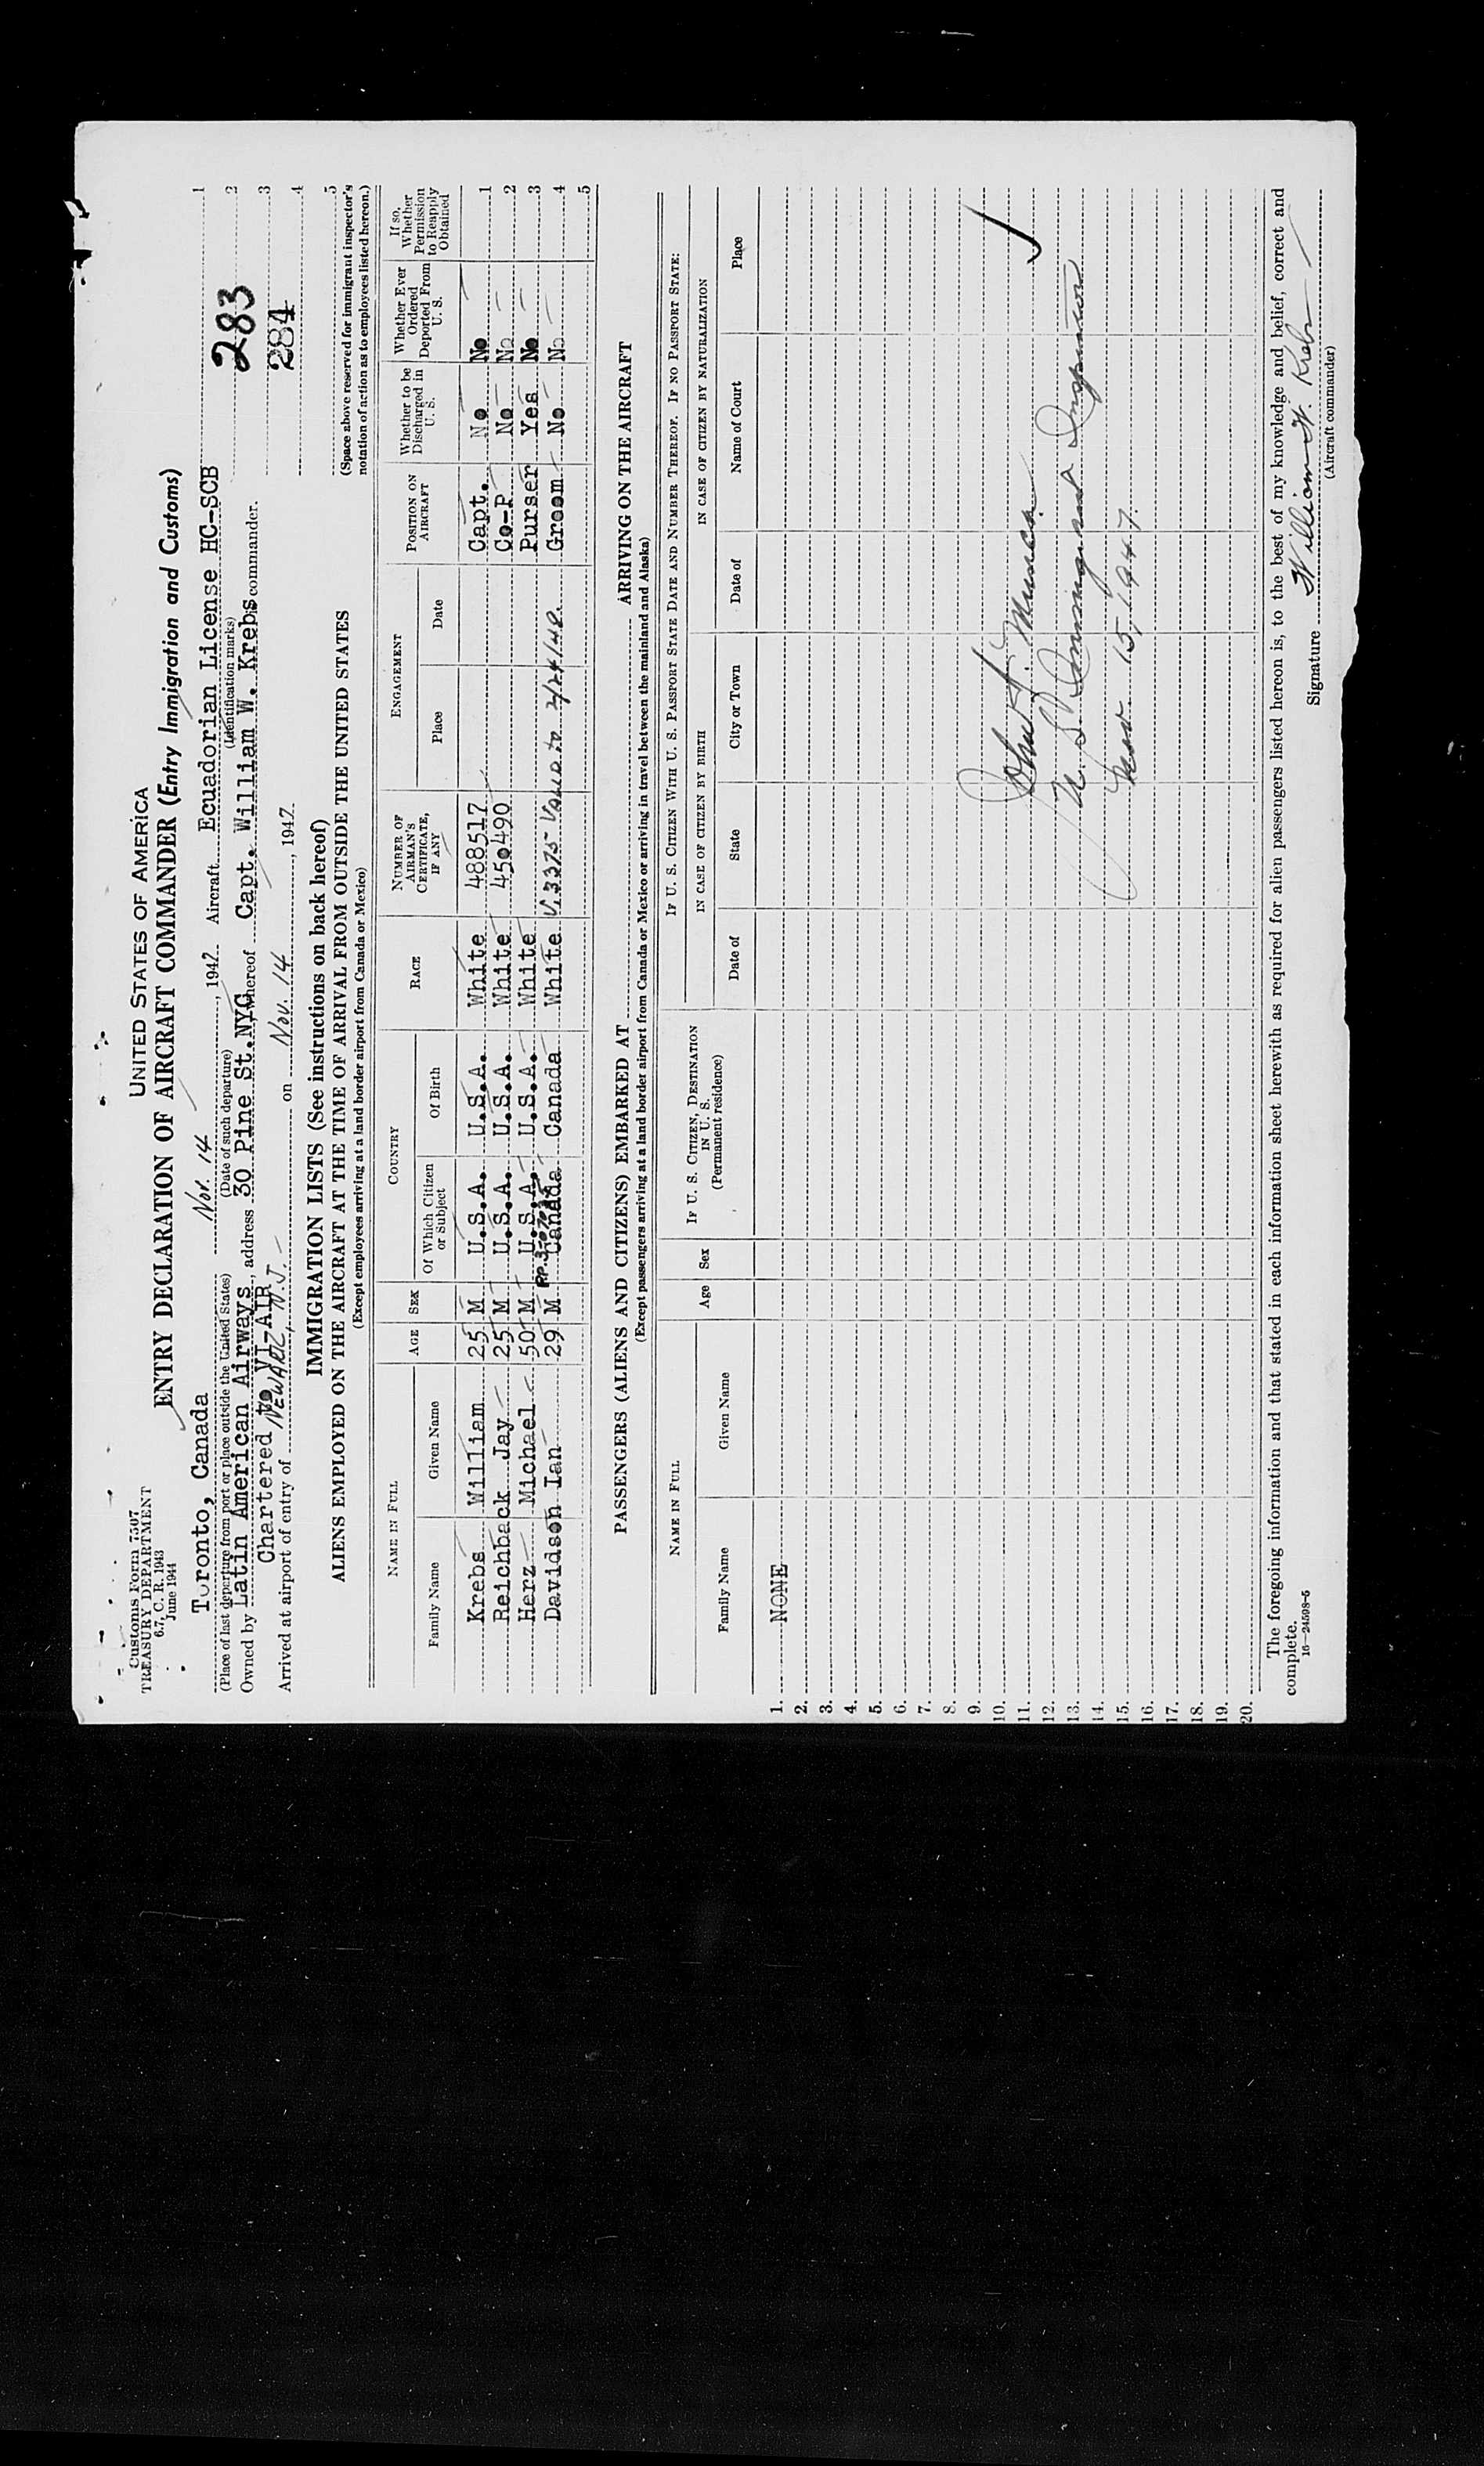 UNITED STATES OF AMERICA
Customs Form 7507
TREASURY DEPARTMENT
6.7, C. R. 1943
June 1944
ENTRY DECLARATION OF AIRCRAFT COMMANDER (Entry Immigration and Customs)
Toronto, Canada Nov. 14, 1947 Aircraft Ecuadorian License HC-SCB 1
(Place of last departure from port or place outside the United States) (Date of such departure) (Identification marks)
Owned by Latin American Airways, address 30 Pine St. NYC whereof Capt. William W. Krebs is commander. 2
283
Chartered to VI-AIR 3
284
Arrived at airport of entry of NEWARK, N.J. on Nov. 14, 1947. 4
5
IMMIGRATION LISTS (See instructions on back hereof)
(Space above reserved for immigrant inspector's notation of action as to employees listed hereon.)
ALIENS EMPLOYED ON THE AIRCRAFT AT THE TIME OF ARRIVAL FROM OUTSIDE THE UNITED STATES
(Except employees arriving at a land border airport from Canada or Mexico)
NAME IN FULL AGE SEX COUNTRY RACE NUMBER OF AIRMAN'S CERTIFICATE, IF ANY ENGAGEMENT POSITION ON AIRCRAFT Whether to be Discharged in U. S. Whether Ever Ordered Deported From U. S. If so, Whether Permission to Reapply Obtained
Family Name Given Name Of Which Citizen or Subject Of Birth Place Date
Krebs William 25 M U.S.A. U.S.A. White 488517 Capt. No No 1
Reichback Jay 25 M U.S.A. U.S.A. White 450490 Co-P No No 2
Herz Michael 50 M U.S.A. U.S.A. White Purser Yes No 3
Davidson Ian 29 M Canada Canada White Groom No No 4
5
PASSENGERS (ALIENS AND CITIZENS) EMBARKED AT ARRIVING ON THE AIRCRAFT
(Except passengers arriving at a land border airport from Canada or Mexico or arriving in travel between the mainland and Alaska)
NAME IN FULL Age Sex IF U. S. CITIZEN, DESTINATION IN U. S. (Permanent residence) IF U. S. CITIZEN WITH U. S. PASSPORT STATE DATE AND NUMBER THEREOF. IF NO PASSPORT STATE:
IN CASE OF CITIZEN BY BIRTH IN CASE OF CITIZEN BY NATURALIZATION
Family Name Given Name Date of State City or Town Date of Name of Court Place
1. NONE
2.
3.
4.
5.
6.
7.
8.
9.
10.
11.
12.
13.
14.
15.
16.
17.
18.
19.
20.
U. S. Immigrant Inspector
Nov 15, 1947.
The foregoing information and that stated in each information sheet herewith as required for alien passengers listed hereon is, to the best of my knowledge and belief, correct and
complete.
16—24598-5
Signature William W. Krebs
(Aircraft commander)